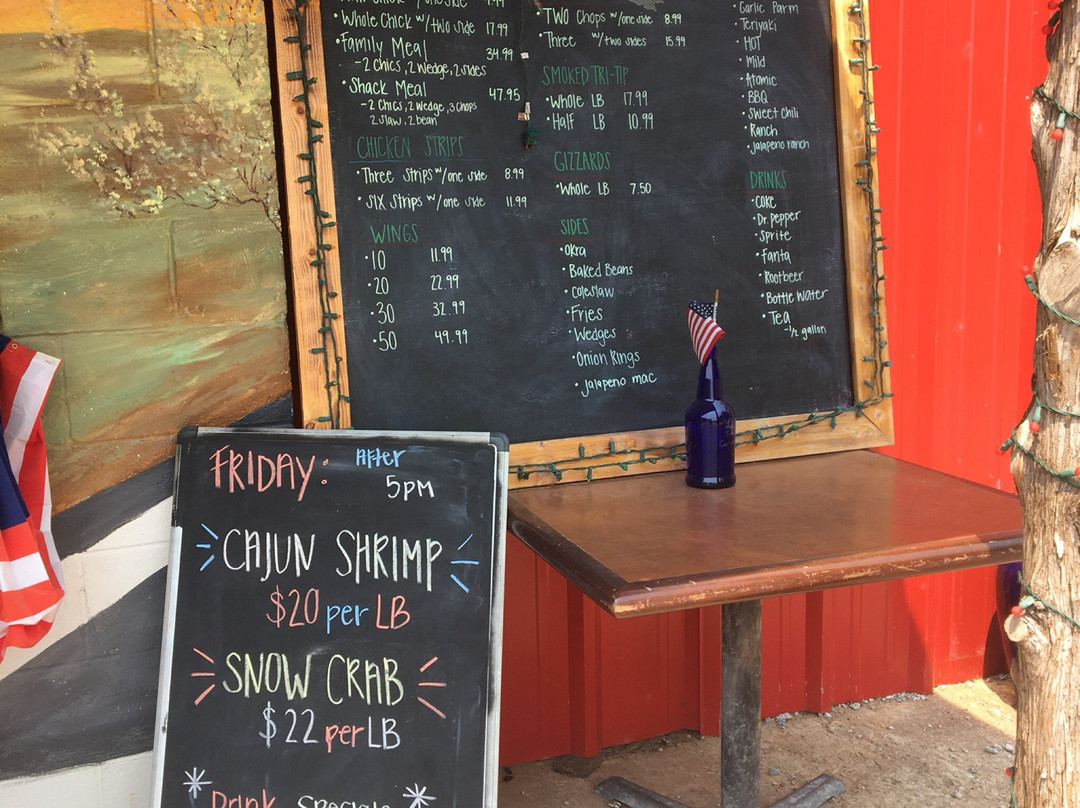 w/one side
• Whole Chick w/two side 17.99
• Family Meal 34.99
- 2 Chics, 2 Wedge, 2 sides
• Shack Meal 47.95
- 2 Chics, 2 Wedge, 3 Chops
2 slaw, 2 bean
CHICKEN STRIPS
• Three Strips w/one side 8.99
• Six Strips w/one side 11.99
WINGS
• 10 11.99
• 20 22.99
• 30 32.99
• 50 49.99
• TWO Chops w/one side 8.99
• Three w/two sides 15.99
SMOKED TRI-TIP
• Whole LB 17.99
• Half LB 10.99
GIZZARDS
• Whole LB 7.50
SIDES
• Okra
• Baked Beans
• Coleslaw
• Fries
• Wedges
• Onion Rings
• Jalapeno mac
• Garlic Parm
• Teriyaki
• HOT
• Mild
• Atomic
• BBQ
• Sweet Chili
• Ranch
• Jalapeno ranch
DRINKS
• Coke
• Dr. Pepper
• Sprite
• Fanta
• Rootbeer
• Bottle Water
• Tea
- 1/2 gallon
FRIDAY: After
5pm
CAJUN SHRIMP
$20 per LB
SNOW CRAB
$22 per LB
Drink Specials